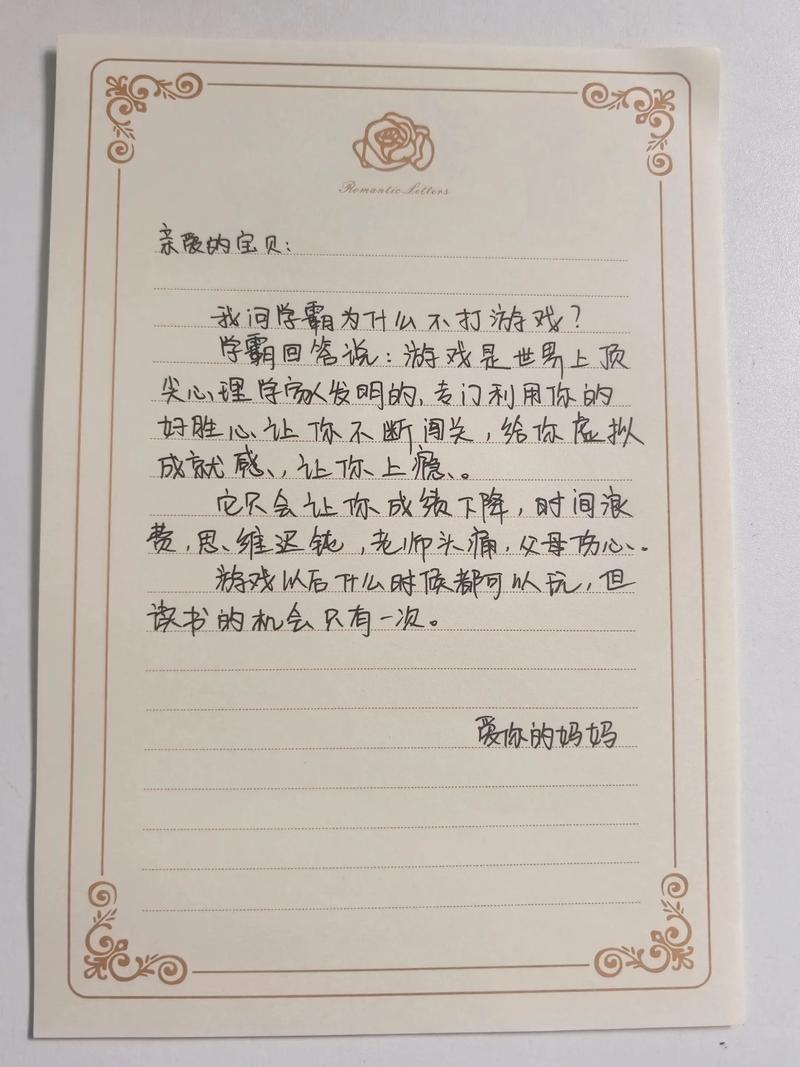 Romantic Letters
亲爱的宝贝：
我问学霸为什么不打游戏？
学霸回答说：游戏是世界上顶
尖心理学家发明的，专门利用你的
好胜心让你不断闯关，给你虚拟
成就感、，让你上瘾、。
它只会让你成绩下降，时间浪
费，思维迟钝，老师头痛，父母伤心。
游戏以后什么时候都可以玩，但
读书的机会只有一次。
爱你的妈妈